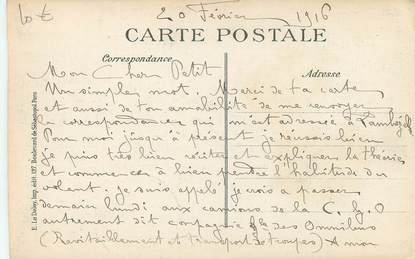 10 €
20 Février 1916
CARTE POSTALE
Correspondance
Adresse
Mon Cher Petit
Un simple mot. Merci de ta carte
et aussi de ton amabilité de me renvoyer
la correspondance qui m'est adressée à Lambézell
Pour moi jusqu'à présent je réussis bien
je puis très bien réciter et expliquer la théorie
et commence à bien prendre l'habitude du
volant. je suis appelé je crois a passer
demain lundi aux camions de la C. G. O
autrement dit compagnie gle des Omnibus
(Ravitaillement et transport de troupes) A mon
E. Le Deley, Imp. édit. 127, Boulevard de Sébastopol, Paris